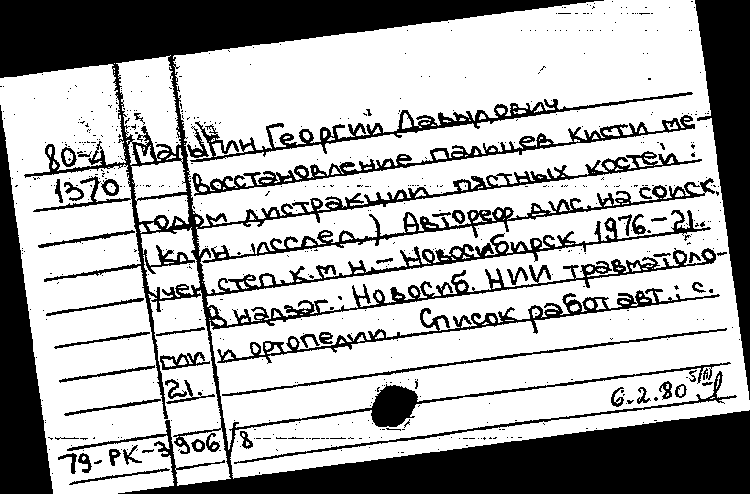 80-4 Малыгин, Георгий Давыдович.
1370 Восстановление пальцев кисти ме-
тодом дистракции пястных костей:
(Клин. исслед.) Автореф. дис. на соиск.
учен. степ. к.м.н. – Новосибирск, 1976. – 21.
В надзаг.: Новосиб. НИИ травматоло-
гии и ортопедии. Список работ авт.: с.
21.
6.2.80
79-РК-3906/8